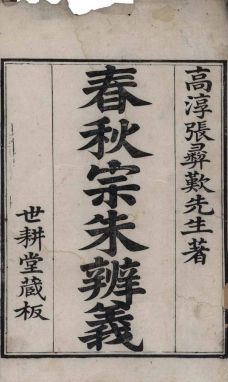 高淳張彞歎先生著
春秋宗朱辨義
世耕堂蔵板